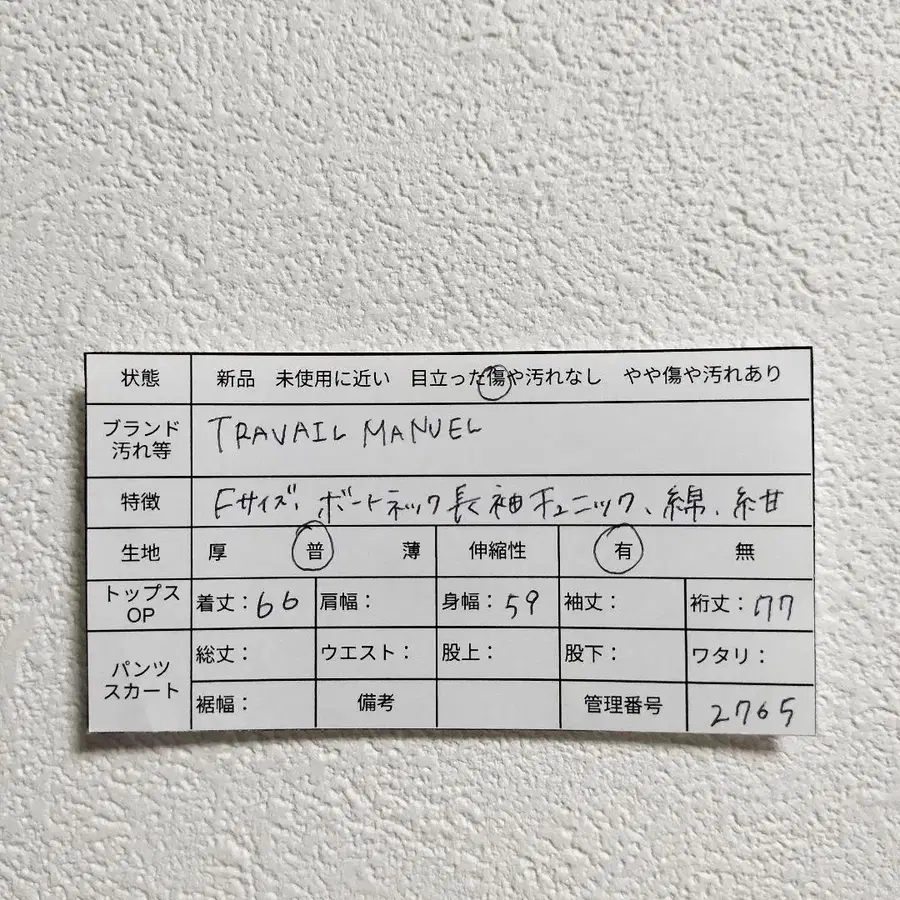 状態 新品 未使用に近い 目立った傷や汚れなし やや傷や汚れあり
ブランド
汚れ等 TRAVAIL MANUEL
特徴 Fサイズ、ボートネック長袖チュニック、綿、紺
生地 厚 普 薄 伸縮性 有 無
トップス
OP 着丈：66 肩幅： 身幅：59 袖丈： 裄丈：77
パンツ
スカート 総丈： ウエスト： 股上： 股下： ワタリ：
裾幅： 備考 管理番号 2765